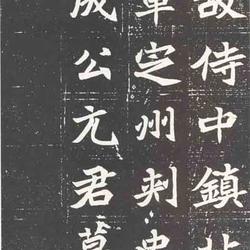 故侍中鎮北
軍定州刾史
成公元君墓